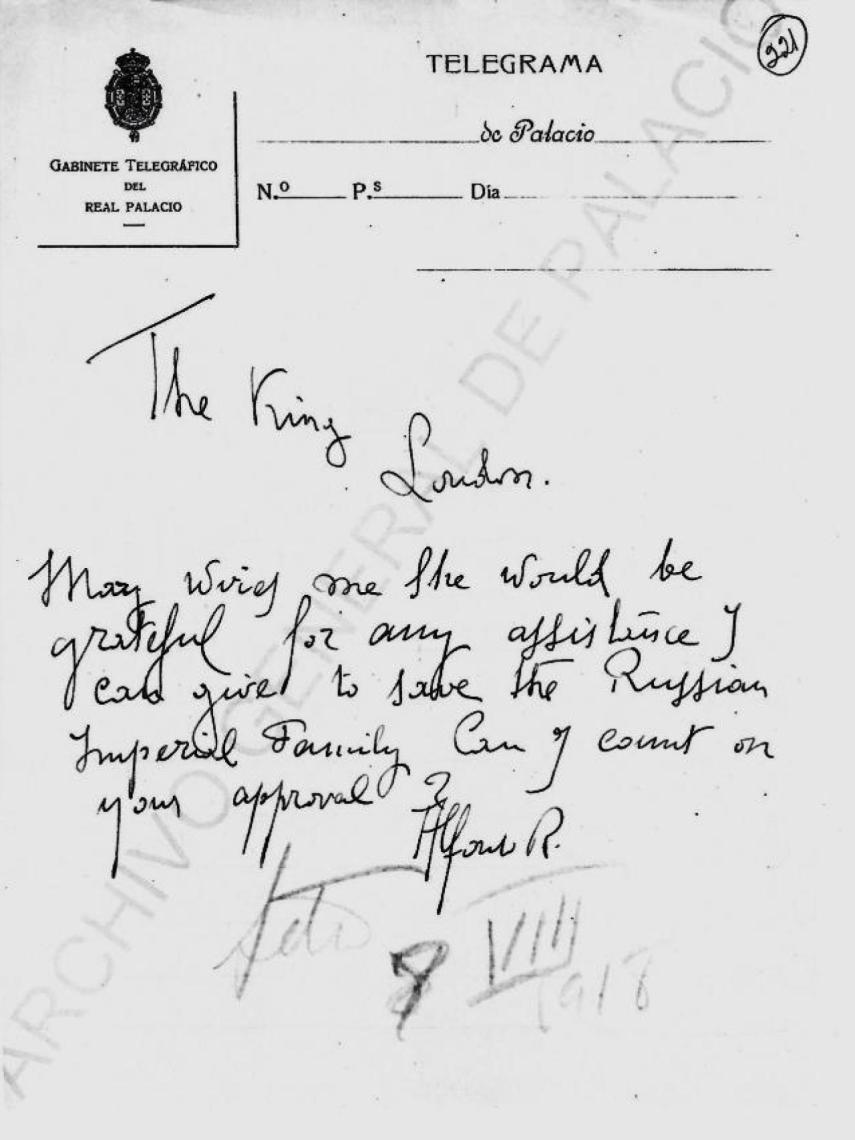 221
TELEGRAMA
de Palacio
GABINETE TELEGRÁFICO
DEL
REAL PALACIO
N.º P.s Día
The King
London.
May wires me she would be
grateful for any assistance I
can give to save the Russian
Imperial Family Can I count on
your approval?
Alfonso R.
8 VIII
1918
ARCHIVO GENERAL DE PALACIO